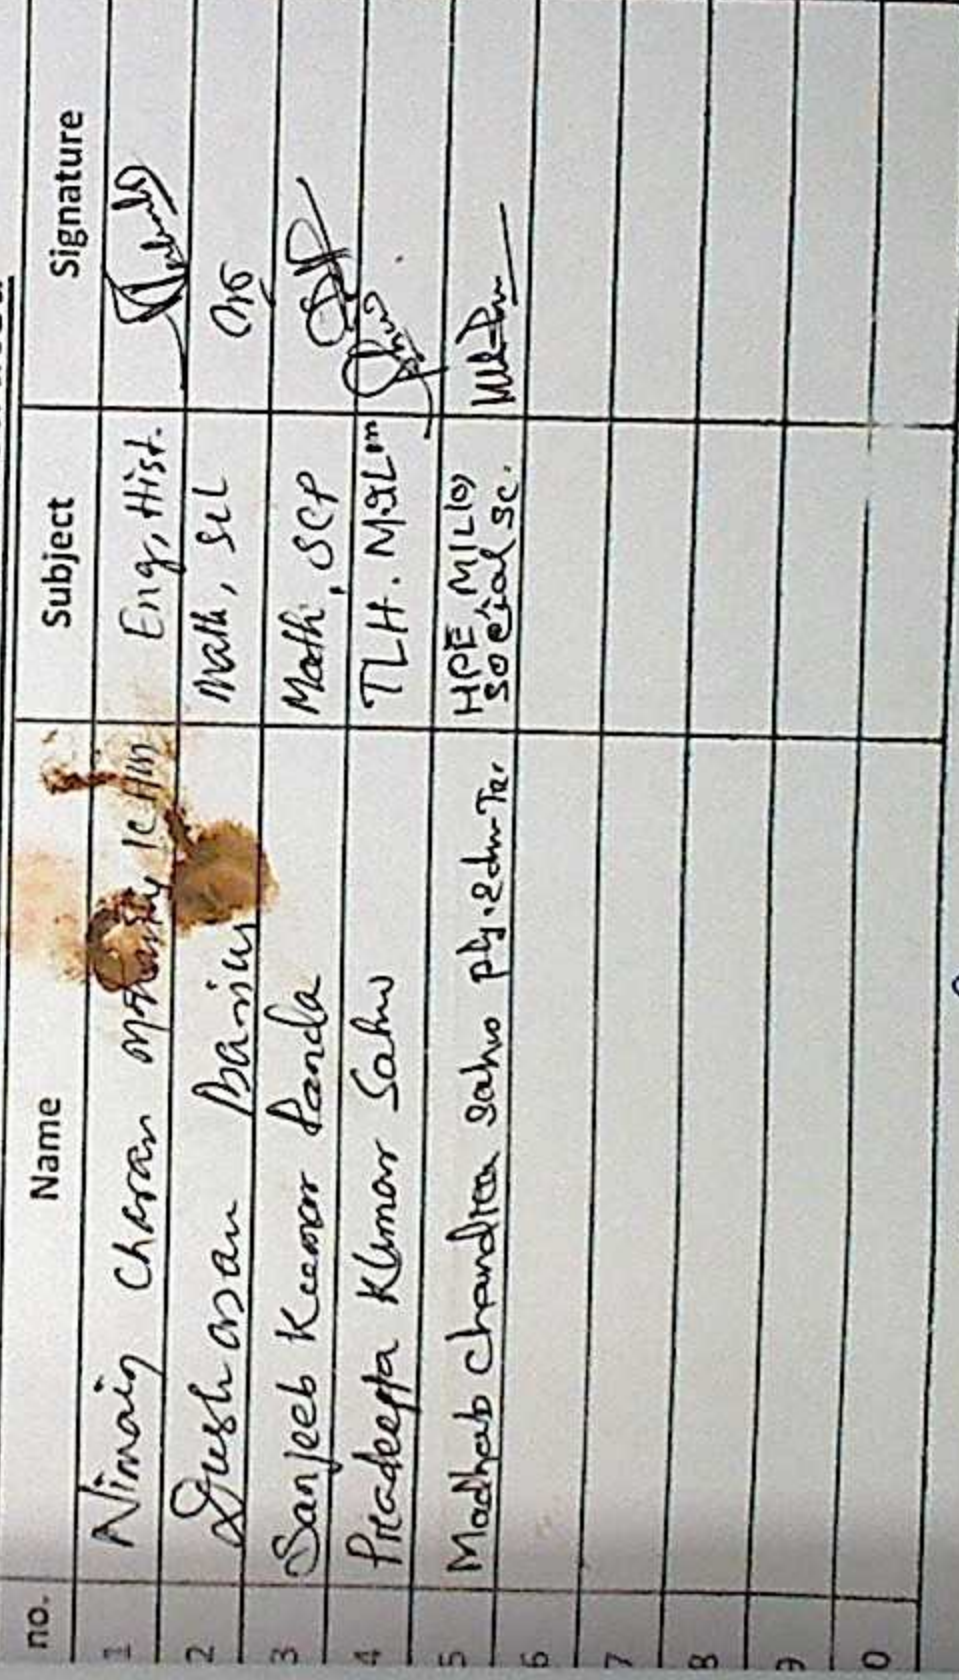 no. Name Subject Signature
1 Nimain Charan Mohanty Eng, Hist.
2 Dushasan Barik Math, Scl
3 Sanjeeb Kumar Panda Math, SCP
4 Pradeepta Kumar Sahu TLH. MIL
5 Madhab Chandra Sahu HPE MIL(O)
Social Sc.
6
7
8
9
0